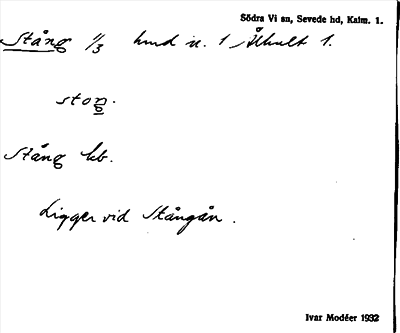 Södra Vi sn, Sevede hd, Kalm. 1.
Stång 1/3 hmd u. 1 Åhult 1.
stoŋ.
Stång kb.
Ligger vid Stångån.
Ivar Modéer 1932